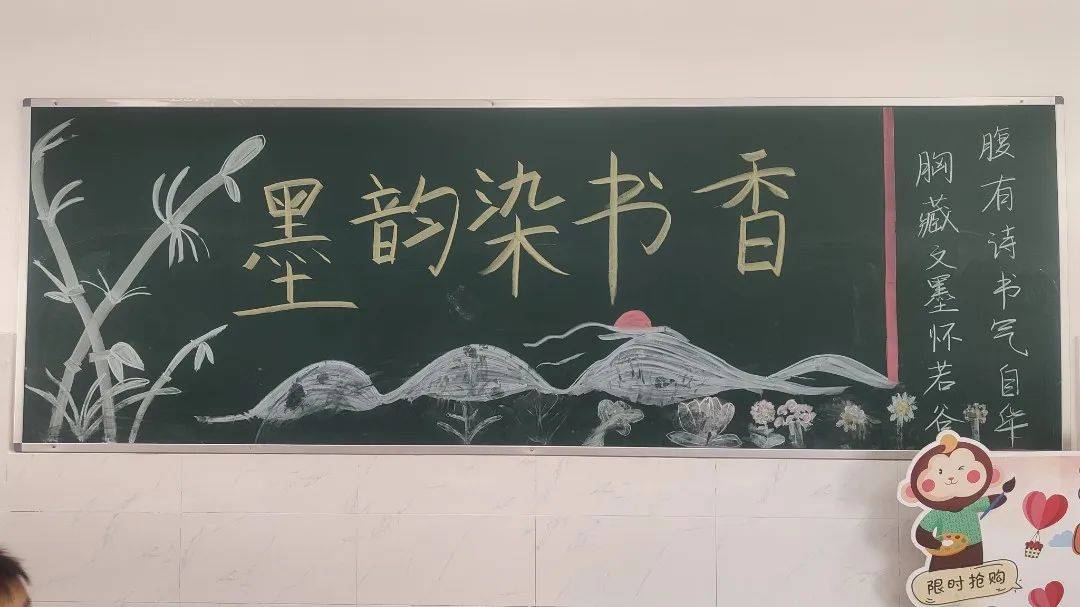 墨韵染书香
腹有诗书气自华
胸藏文墨怀若谷
限时抢购